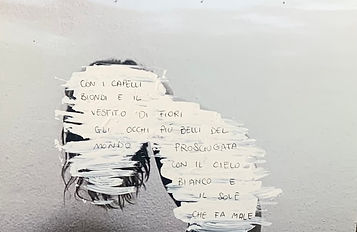 CON I CAPELLI
BIONDI E IL
VESTITO DI FIORI
GLI OCCHI PIÙ BELLI DEL
MONDO PROSCIUGATA
CON IL CIELO
BIANCO E
IL SOLE
CHE FA MALE